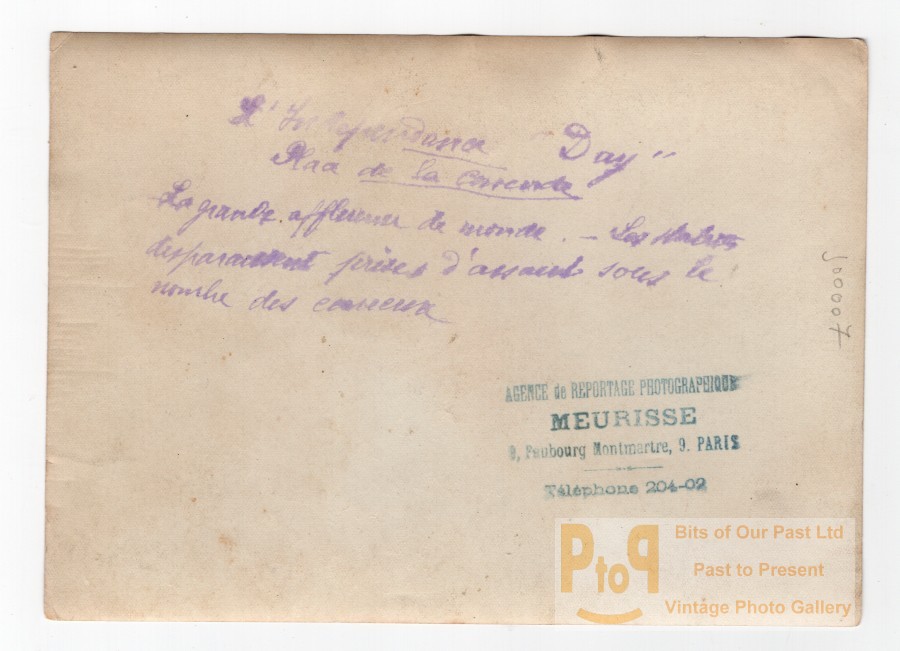 L'Independance Day"
Place de la Concorde
La grande affluence de monde. — Les statues
disparaissent prises d'assaut sous le
nombre des curieux
AGENCE de REPORTAGE PHOTOGRAPHIQUE
MEURISSE
9, Faubourg Montmartre, 9. PARIS
Téléphone 204-02
PtoP
Bits of Our Past Ltd
Past to Present
Vintage Photo Gallery